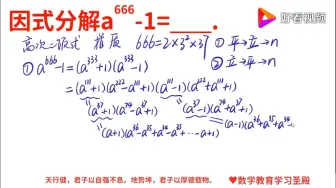 因式分解a^666-1=____.
好看视频
高次二项式 指质 666=2×3²×37 ①平→立→n
②立→平→n
①a^666-1=(a^333+1)(a^333-1)
=(a^111+1)(a^222-a^111+1)(a^111-1)(a^222+a^111+1)
(a^37+1)(a^74-a^37+1) (a^37-1)(a^74+a^37+1)
=(a-1)(a^36+a^35+a^34
(a+1)(a^36-a^35+a^34-a^33+…-a+1)
天行健,君子以自强不息。地势坤,君子以厚德载物。
♥数学教育学习圣殿